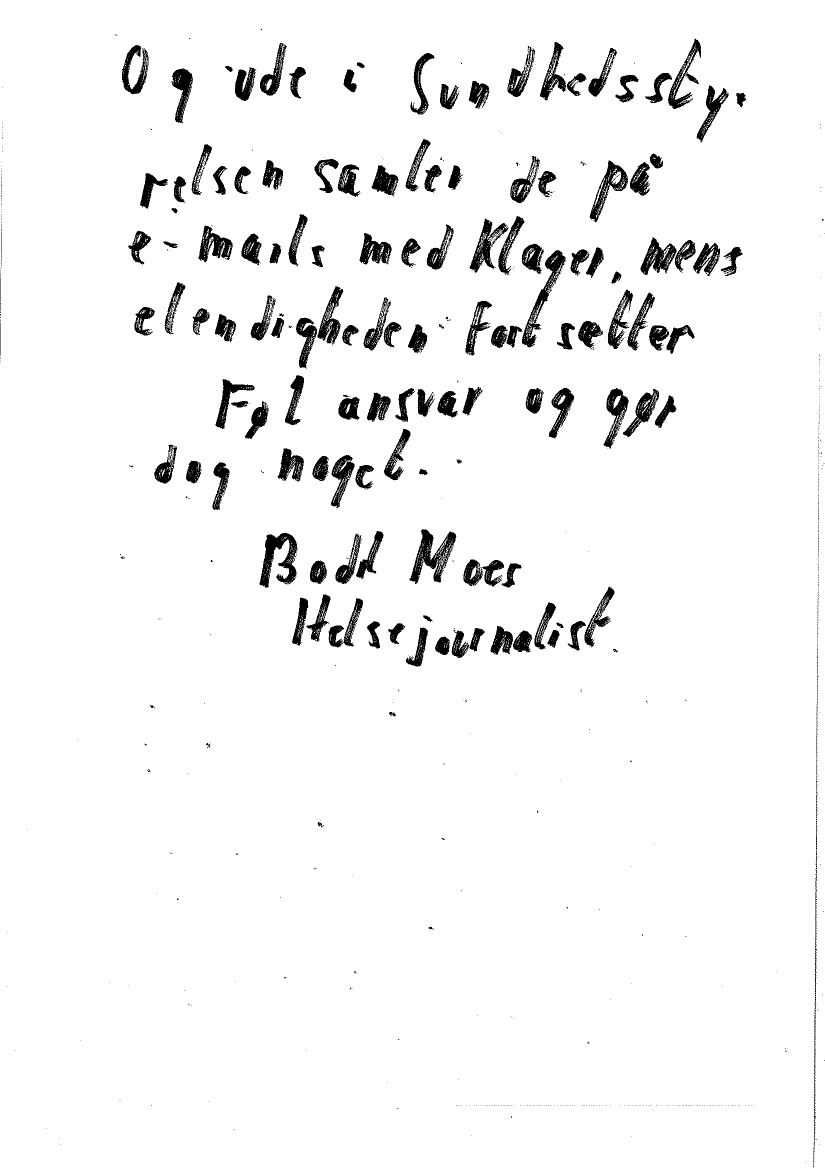 Og ude i Sundhedssty-
relsen samler de på
e-mails med Klager, mens
elendigheden fortsætter
Føl ansvar og gør
dog noget.
Bodil Moes
Helsejournalist.